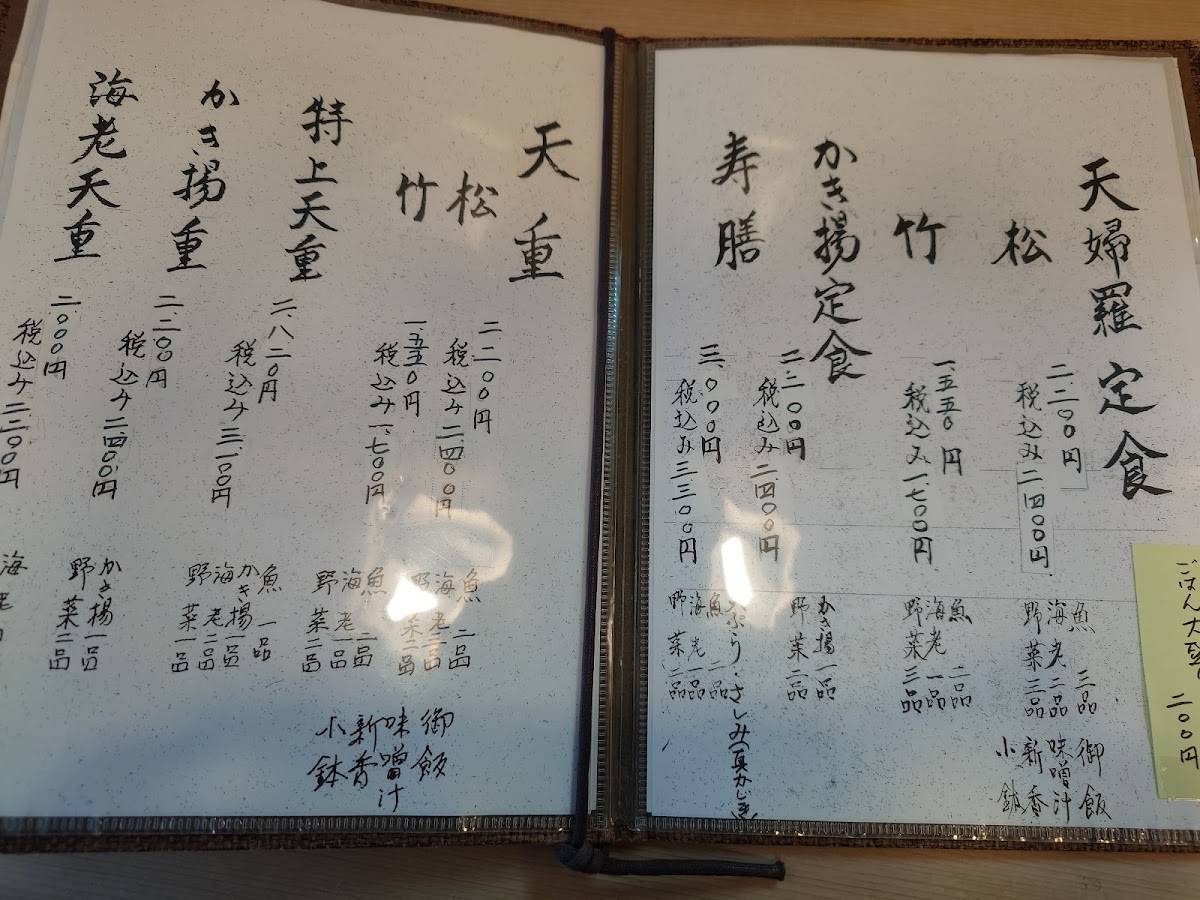 天婦羅定食
松
二、二〇〇円
税込み二四〇〇円
魚 三品
海老二品
野菜三品
御飯
味噌汁
新香
小鉢
竹
一、五五〇円
税込み一、七〇〇円
魚 二品
海老一品
野菜三品
かき揚定食
二、二〇〇円
税込み二四〇〇円
かき揚一品
野菜二品
寿膳
三、〇〇〇円
税込み三三〇〇円
天ぷら・さしみ(真かじき
魚 二品
海老一品
野菜二品
ごはん大盛り
二〇〇円
天重
松
二、二〇〇円
税込み二、四〇〇円
魚 二品
海老二品
野菜二品
竹
一、五五〇円
税込み一、七〇〇円
魚 二品
海老一品
野菜二品
御飯
味噌汁
新香
小鉢
特上天重
二、八二〇円
税込み三、一〇〇円
魚 一品
かき揚一品
海老二品
野菜一品
かき揚重
二、二〇〇円
税込み二、四〇〇円
かき揚一品
野菜二品
海老天重
二、〇〇〇円
税込み二、二〇〇円
海老